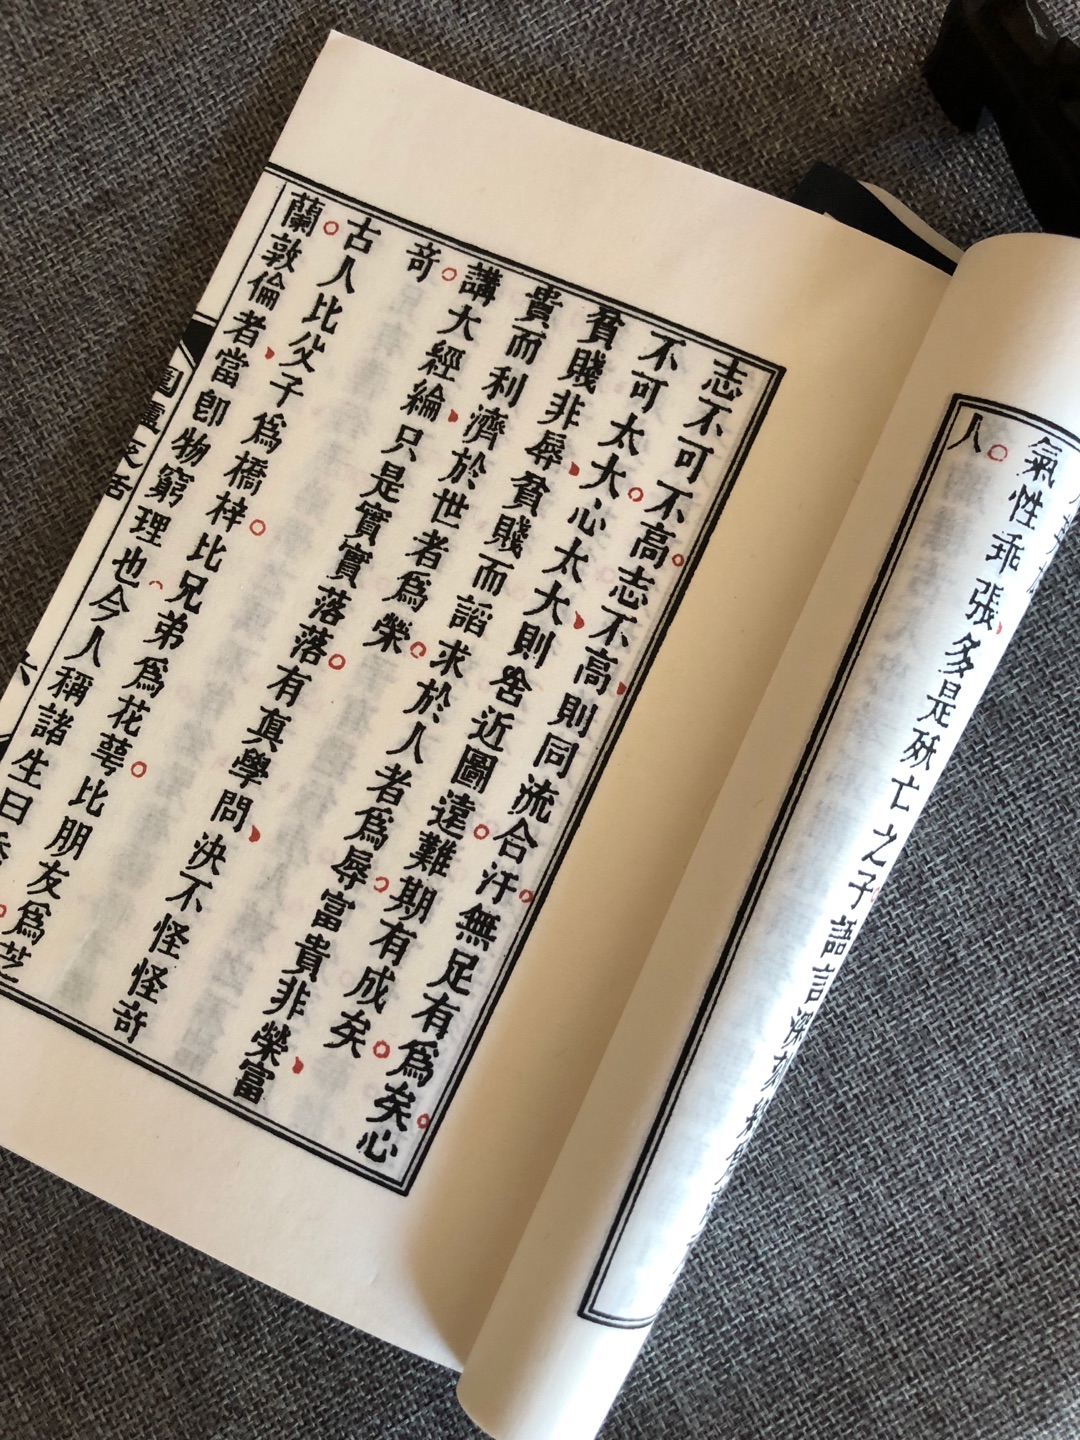 氣性乖張多是殀亡之子語言深刻
人
志不可不高志不高則同流合汙無足有爲矣心
不可太大心太大則舍近圖遠難期有成矣
貧賤非辱貧賤而諂求於人者爲辱富貴非榮富
貴而利濟於世者爲榮
講大經綸只是實實落落有真學問決不怪怪竒
竒
古人比父子爲橋梓比兄弟爲花萼比朋友爲芝
蘭敦倫者當卽物窮理也今人稱諸生曰
圍爐夜話